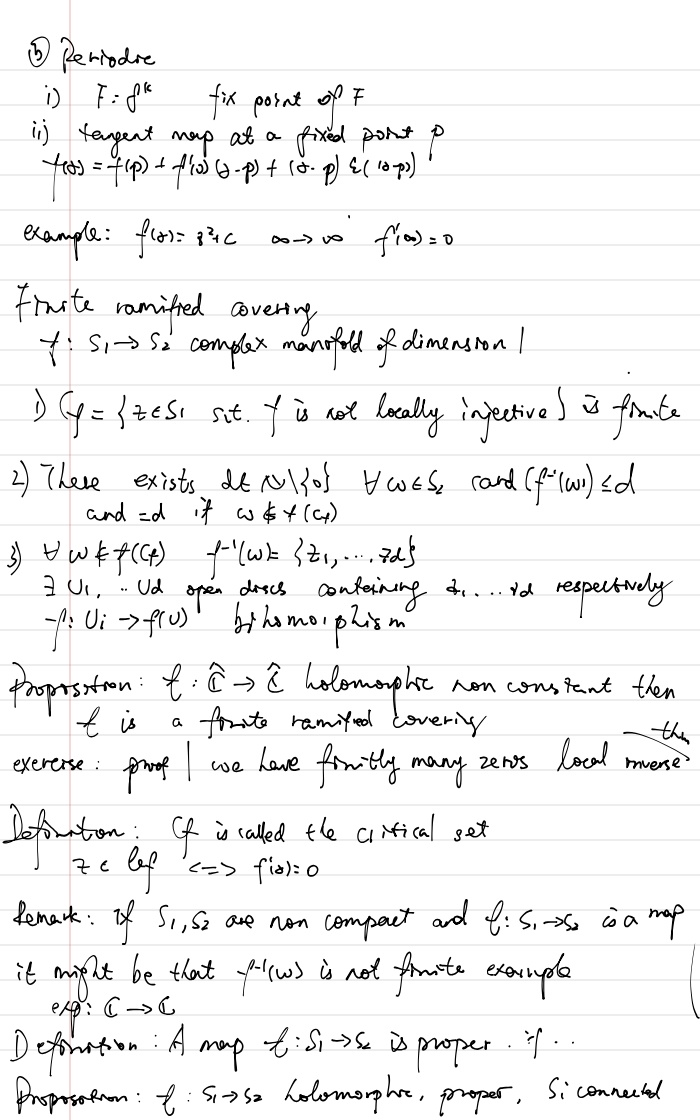 ⑤ Periodic
i) F = f^k fix point of F
ii) tangent map at a fixed point p
f(z) = f(p) + f'(z) (z-p) + (z-p) ε(z-p)
example: f(z) = z²+c ∞→∞ f'(∞) = 0
Finite ramified covering
f: S₁ → S₂ complex manifold of dimension 1
1) Cf = {z∈S₁ s.t. f is not locally injective} is finite
2) There exists d∈ℕ\{0} ∀ω∈S₂ card(f⁻¹(ω)) ≤ d
and = d if ω ∉ f(Cf)
3) ∀ω ∉ f(Cf) f⁻¹(ω) = {z₁, ..., zd}
∃ U₁, .. Ud open discs containing z₁, ... zd respectively
f: Ui → f(U) bihomorphism
Proposition: f: Ĉ → Ĉ holomorphic non constant then
f is a finite ramified covering
exercise: proof | we have finitly many zeros local inverse thm
Definition: Cf is called the critical set
z ∈ Cf <=> f'(z) = 0
Remark: If S₁, S₂ are non compact and f: S₁→S₂ is a map
it might be that f⁻¹(ω) is not finite example
exp: ℂ → ℂ
Definition: A map f: S₁→S₂ is proper . if ..
Proposition: f: S₁→S₂ holomorphic, proper, Si connected